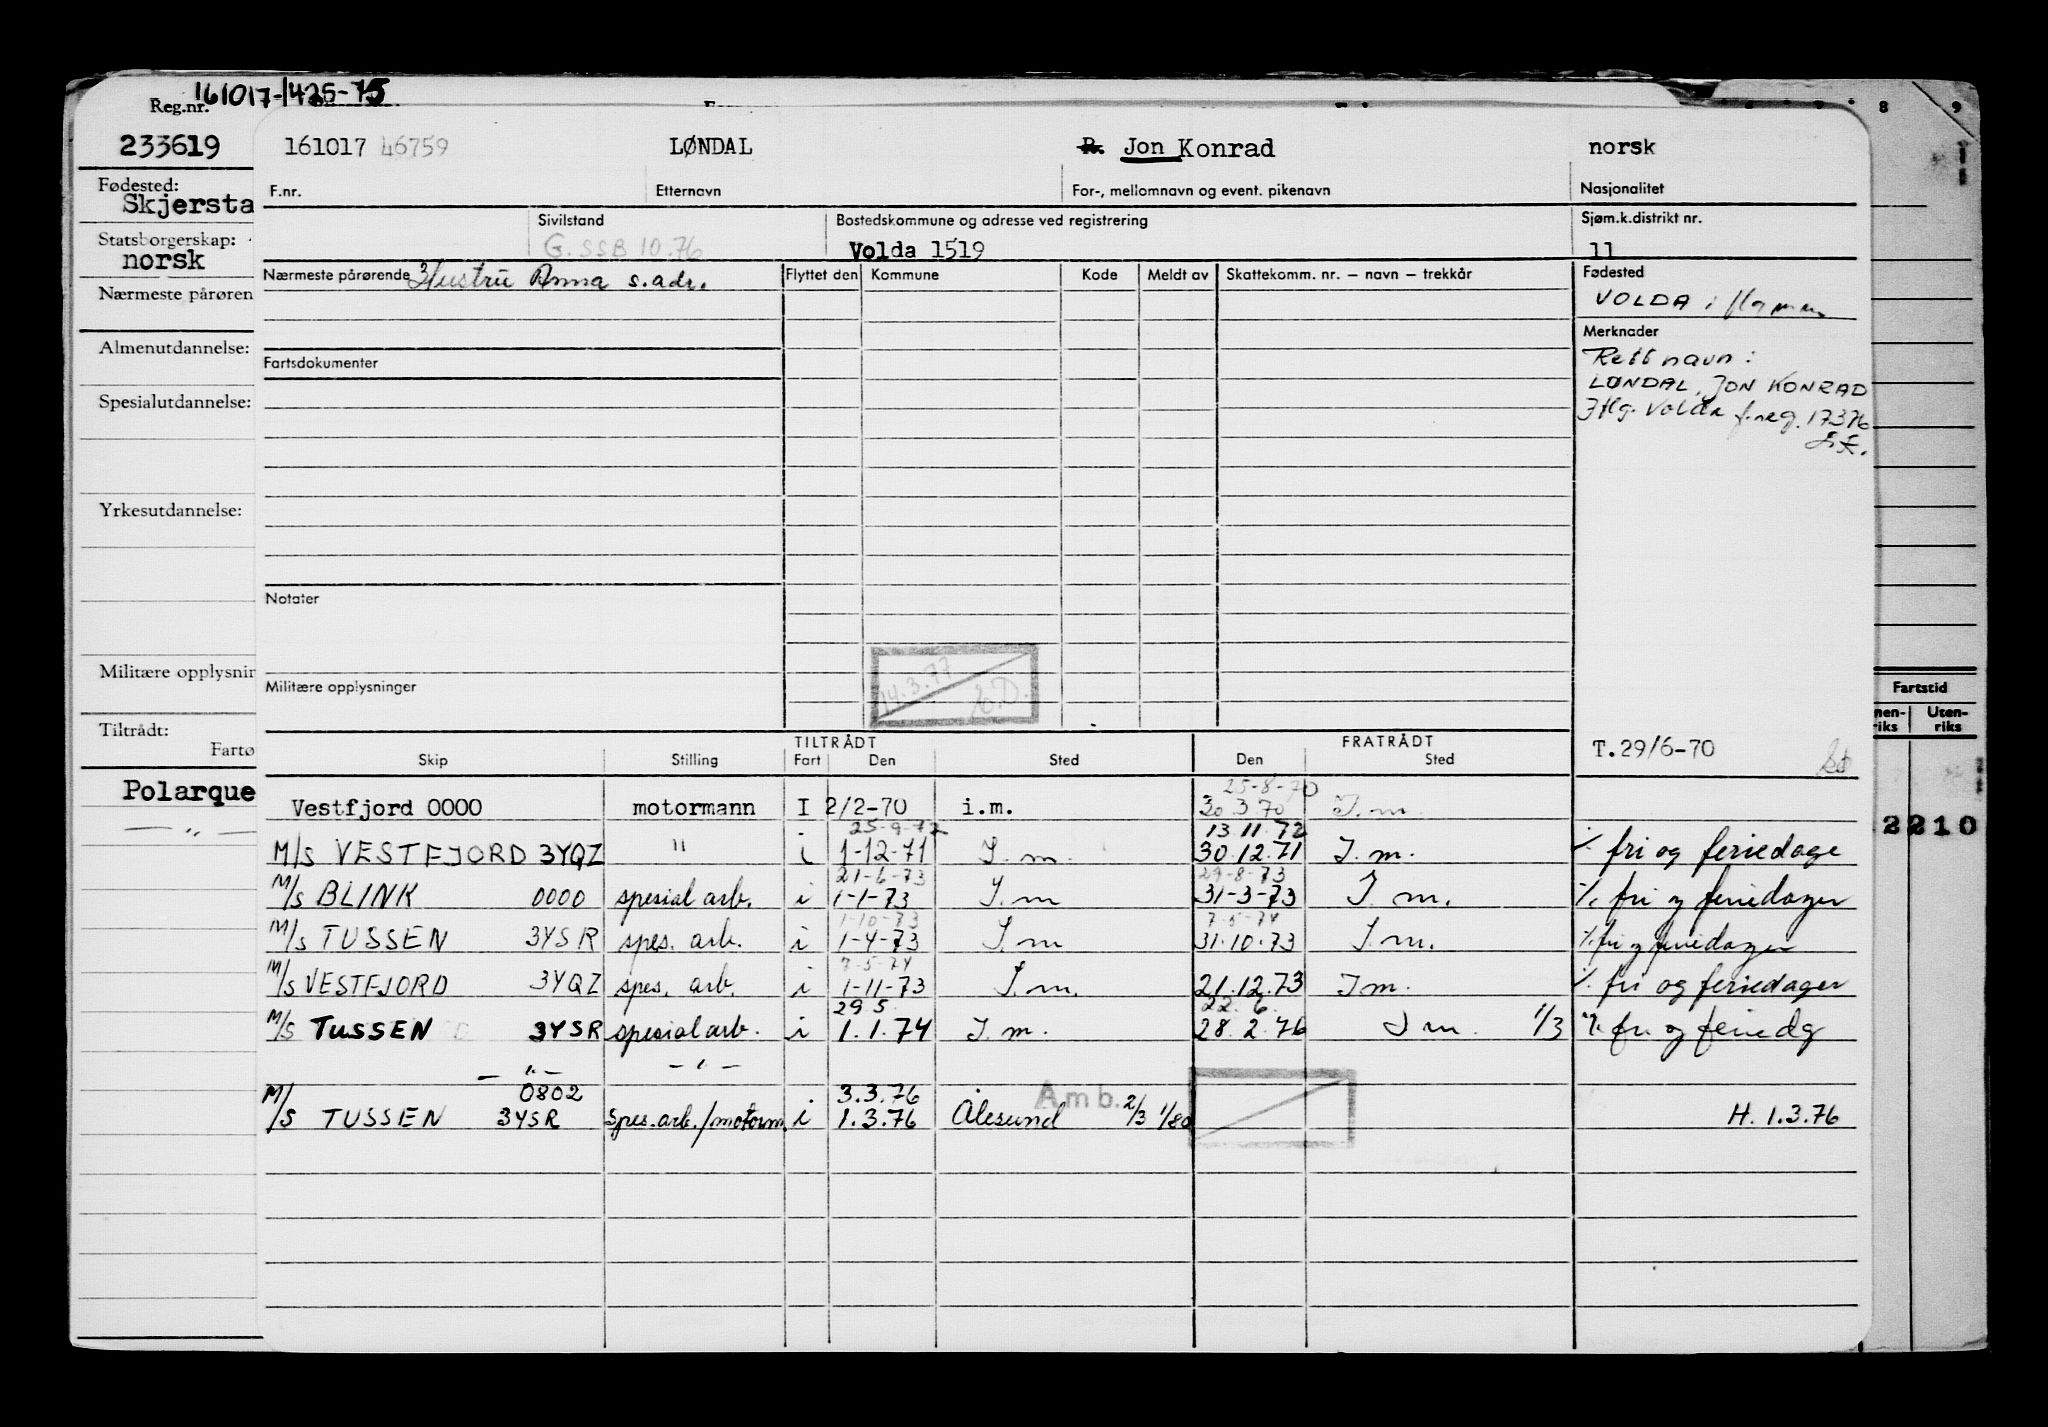 161017-1425-75
Reg.nr.
233619
161017 46759 LØNDAL R. Jon Konrad norsk
8 9
Fødested:
Skjersta
F.nr. Etternavn For-, mellomnavn og event. pikenavn Nasjonalitet
Sivilstand Bostedskommune og adresse ved registrering Sjøm.k.distrikt nr.
Statsborgerskap:
norsk
G. SSB 10.76 Volda 1519 11
Nærmeste pårørende Hustru Anna s.adr. Flyttet den Kommune Kode Meldt av Skattekomm. nr. – navn – trekkår Fødested
VOLDA i
Nærmeste pårøren
Merknader
Rett navn:
LØNDAL, JON KONRAD
Iflg. Volda f.reg. 17376
Almenutdannelse:
Fartsdokumenter
Spesialutdannelse:
Yrkesutdannelse:
Notater
Militære opplysnin
Militære opplysninger
14.3.77
Fartstid
nen-riks Uten-riks
Tiltrådt:
Fartø
TILTRÅDT FRATRÅDT
Skip Stilling Fart Den Sted Den Sted
T.29/6-70
Polarque
— " —
25-8-70
Vestfjord 0000 motormann I 2/2-70 i.m. 30.3.70 I.m.
2210
25-9-72 13.11.72
M/S VESTFJORD 3YQZ " i 1-12-71 I.m. 30.12.71 I.m. % fri og feriedage
21-6-73 29-8-73
M/S BLINK 0000 spesial arb. i 1-1-73 I.m 31-3-73 I.m. % fri og feriedager
1-10-73 7-5-74
M/S TUSSEN 3YSR spes. arb. i 1-4-73 I.m 31.10.73 I.m. % fri og feriedager
7-5-74
M/S VESTFJORD 3YQZ spes. arb. i 1-11-73 I.m. 21.12.73 I.m. % fri og feriedager
29 5 22. 6.
M/S TUSSEN 3YSR spesial arb. i 1.1.74 I.m. 28.2.76 I m. 1/3 % fri og feriedg
— " — — " —
0802 3.3.76 Amb.
M/S TUSSEN 3YSR spes.arb./motorm. i 1.3.76 Ålesund 2/3 1/80 H. 1.3.76